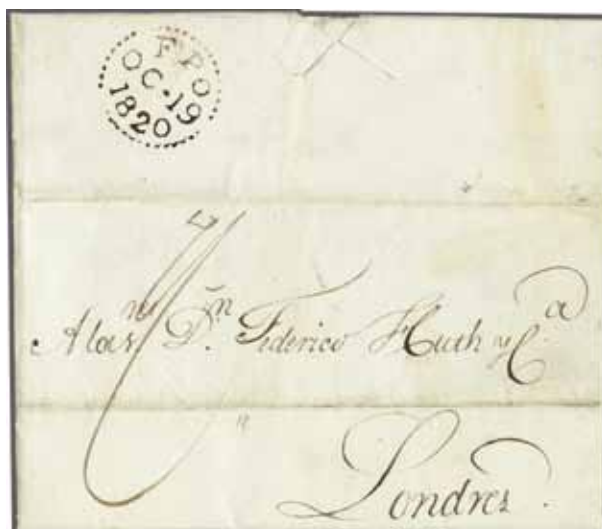 FPO
OC·19
1820
Dn. Federico Huth y Ca.
Londres.